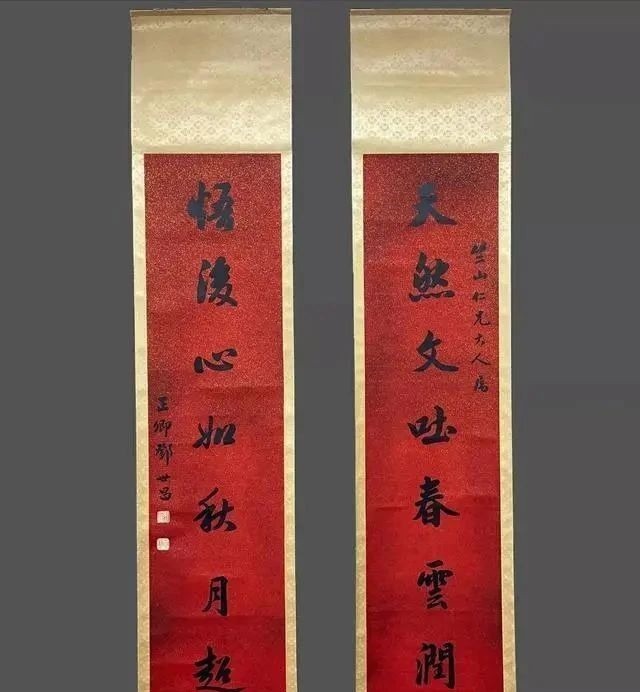 竺山仁兄大人属
天然文吐春雲潤
悟後心如秋月超
正卿鄧世昌